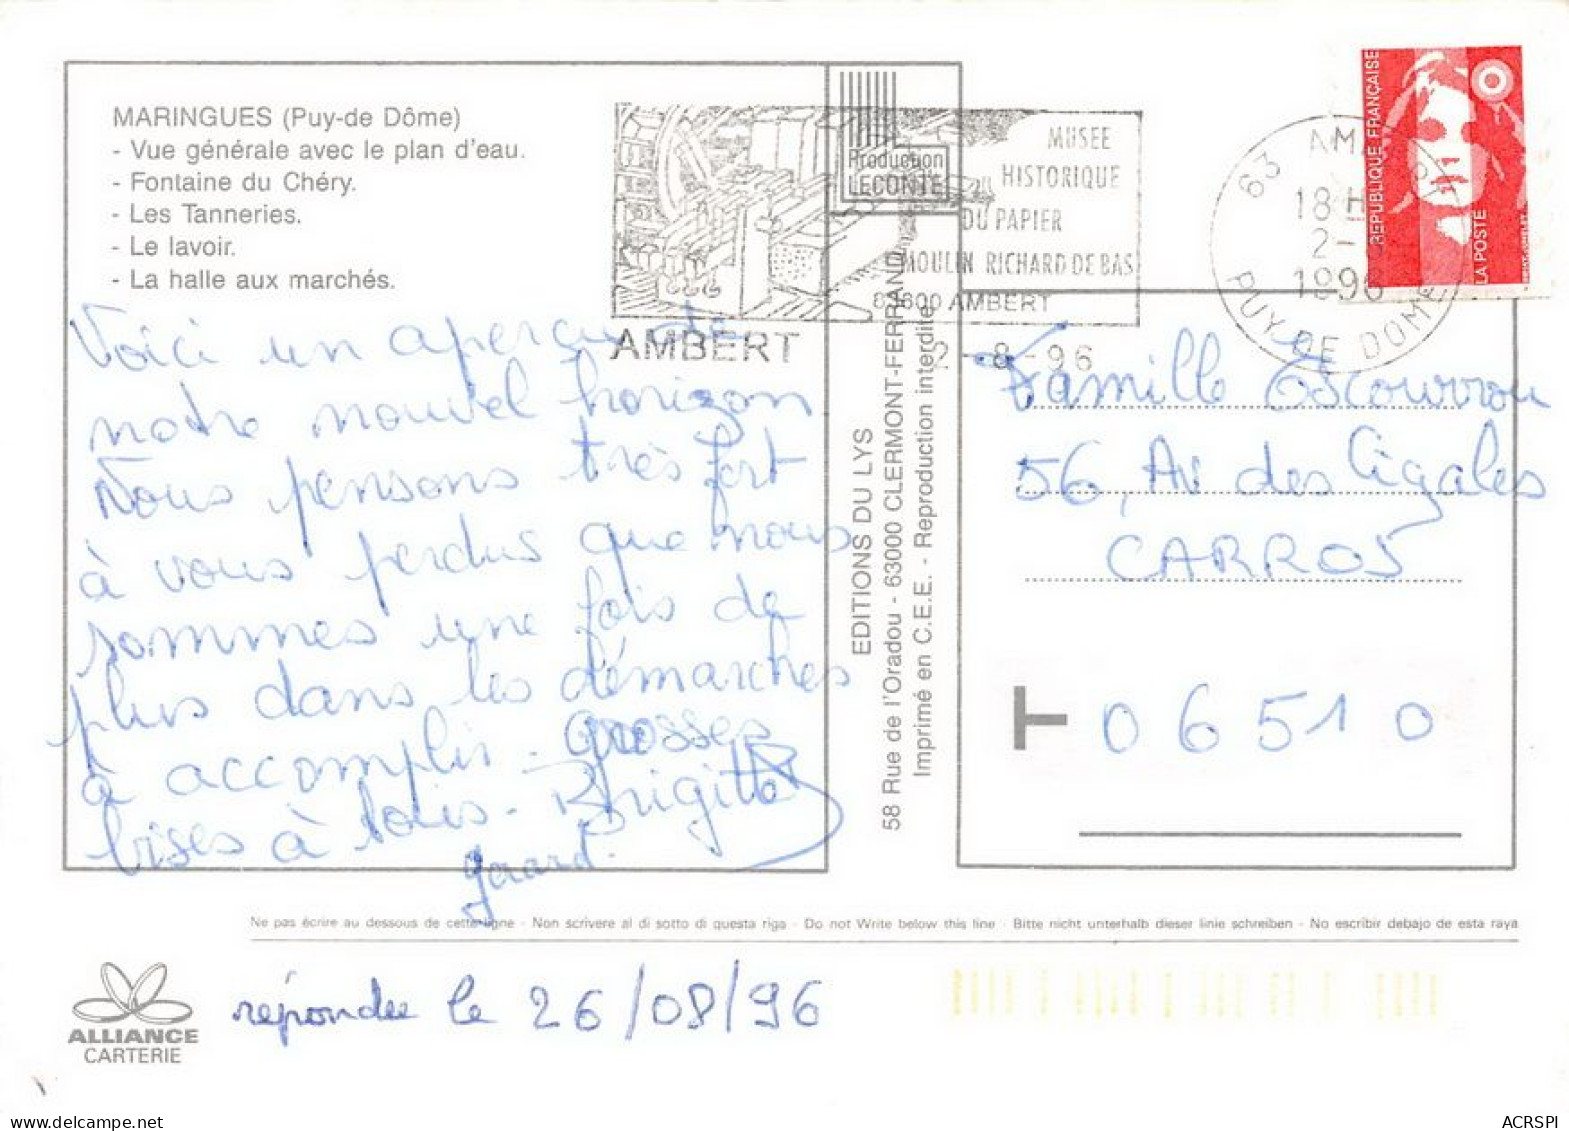 MARINGUES (Puy-de Dôme)
- Vue générale avec le plan d'eau.
- Fontaine du Chéry.
- Les Tanneries.
- Le lavoir.
- La halle aux marchés.
Voici un aperçu de
notre nouvel horizon
Nous pensons très fort
à vous perdus que nous
sommes une fois de
plus dans les démarches
à accomplir - grosses
bises à tous - Brigitte
gérard
Production
LECONTE
MUSEE
HISTORIQUE
DU PAPIER
MOULIN RICHARD DE BAS
63600 AMBERT
AMBERT
2-8-96
63 AMBERT
18 H
2-
1996
PUY DE DOME
REPUBLIQUE FRANÇAISE
LA POSTE
EDITIONS DU LYS
58 Rue de l'Oradou - 63000 CLERMONT-FERRAND
Imprimé en C.E.E. - Reproduction interdite
Famille Escourrou
56, Av des Cigales
CARROS
T 06510
Ne pas écrire au dessous de cette ligne - Non scrivere al di sotto di questa riga - Do not Write below this line - Bitte nicht unterhalb dieser linie schreiben - No escribir debajo de esta raya
ALLIANCE
CARTERIE
répondu le 26/08/96
ACRSPI